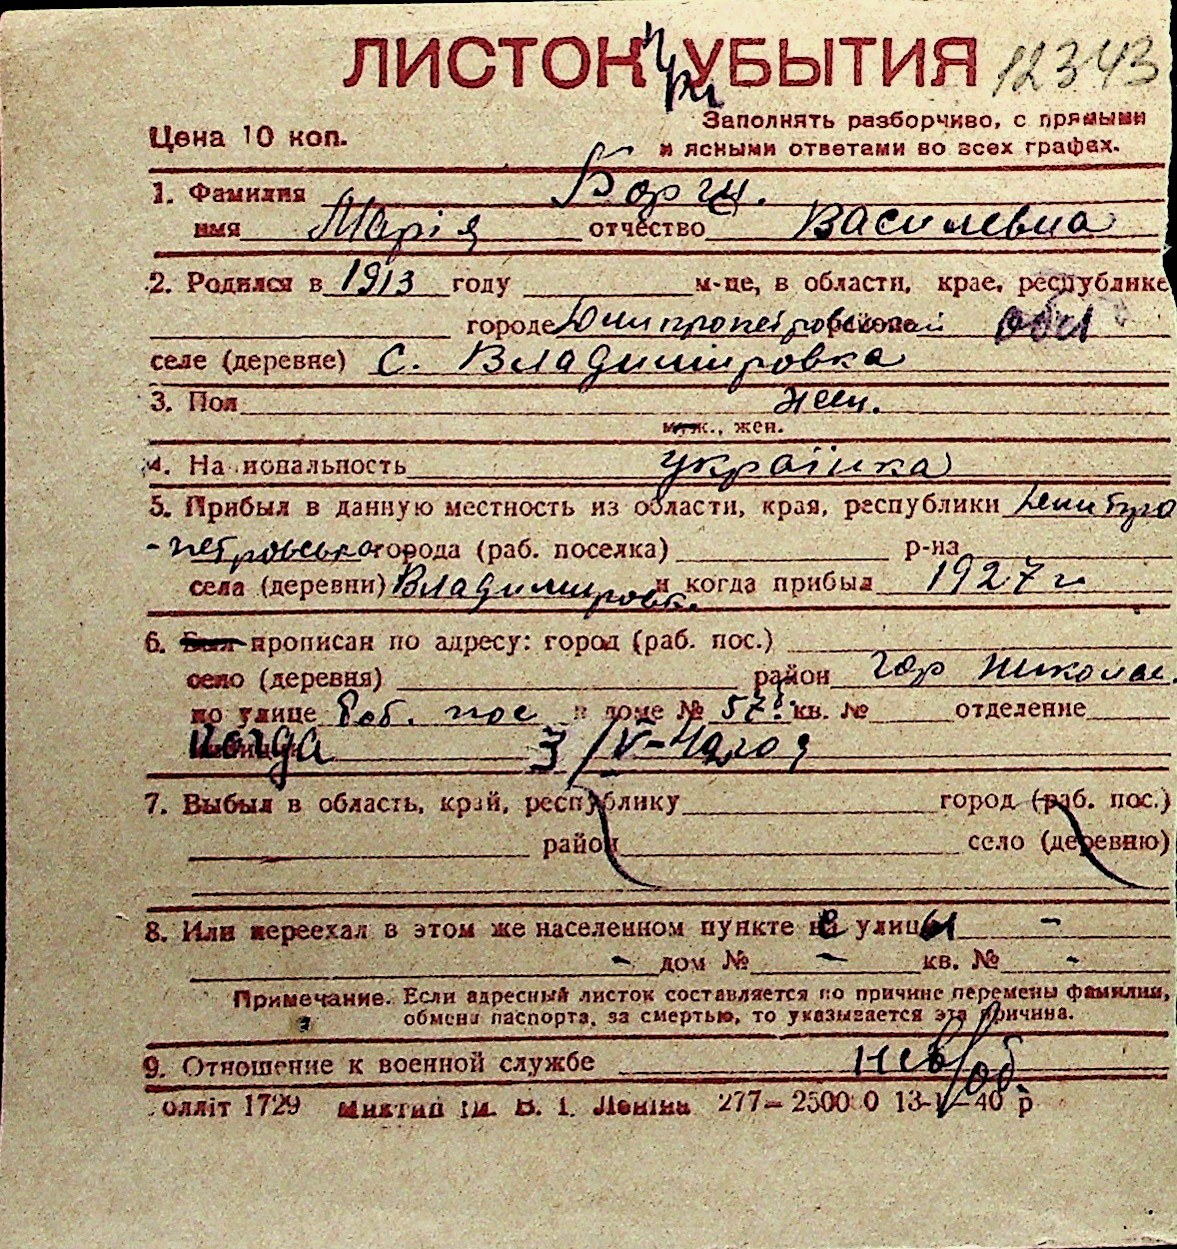 ЛИСТОК УБЫТИЯ при 12343
Заполнять разборчиво, с прямыми
Цена 10 коп. и ясными ответами во всех графах.
1. Фамилия
имя Марія отчество Василевна
2. Родился в 1913 году м-це, в области, крае, республике
городе Днипропетровский районе обл
селе (деревне) с. Владимировка
3. Пол жен.
муж., жен.
4. Национальность українка
5. Прибыл в данную местность из области, края, республики Днипро
-петровська города (раб. поселка) р-на
села (деревни) Владимировк. и когда прибыл 1927 г
6. Был прописан по адресу: город (раб. пос.)
село (деревня) район гор Николаев
по улице Роб. пос в доме № 57 кв. № отделение
милиции когда З /V-
7. Выбыл в область, край, республику город (раб. пос.)
район село (деревню)
8. Или переехал в этом же населенном пункте на улицы -
- дом № - кв. № -
Примечание. Если адресный листок составляется по причине перемены фамилии,
обмена паспорта, за смертью, то указывается эта причина.
9. Отношение к военной службе нев/об.
олліт 1729 Миктип ім. В. І. Леніна 277— 2500 0 13-І—40 р